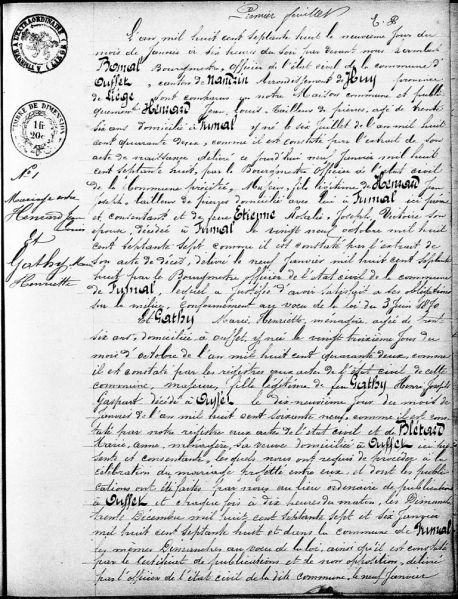 Premier feuillet
L'an mil huit cent septante huit le neuvième jour du
mois de Janvier à six heures du soir par devant nous
Bomal Bourgmestre, officier de l'état civil de la commune d'
Ouffet, canton de Nandrin Arrondissement de Huy province
de Liège sont comparus en notre Maison commune et publi-
quement Henrard Jean Louis, tailleur de pierres, agé de trente
six ans domicilié à Fumal y né le six Juillet de l'an mil huit
cent quarante deux, comme il est constaté par l'extrait de son
acte de naissance délivré ce jourd'hui neuf Janvier mil huit
cent septante huit, par le Bourgmestre officier de l'état civil
de la Commune précitée, Majeur, fils légitime de Henrard Jean
Joseph, tailleur de pierres domicilié avec lui à Fumal ici présent
et consentant et de feue Etienne Rosalie Joseph, Victoire son
épouse, décédée à Fumal le vingt neuf octobre mil huit
cent septante sept comme il est constaté par l'extrait de
son acte de décès, délivré le neuf Janvier mil huit cent septante
huit par le Bourgmestre officier de l'état civil de la commune
de Fumal, lequel a justifié d'avoir satisfait à ses obligations
sur la milice, conformément au voeu de la loi du 3 Juin 1870
Et Gathy Marie Henriette, ménagère agée de trente
six ans, domiciliée à Ouffet, y née le vingt troisième jour du
mois d'octobre de l'an mil huit cent quarante deux, comme
il est constaté par les registres aux actes de l'état civil de cette
commune, majeure, fille légitime de feu Gathy Henri Joseph
Gaspart décédé à Ouffet le dix neuvième jour du mois de
janvier de l'an mil huit cent soixante neuf, comme il est cons-
taté par notre registre aux actes de l'état civil et de Blérard
Marie Anne, ménagère, sa veuve domiciliée à Ouffet ici pré-
sente et consentante, lesquels nous ont requis de procéder à la
célébration du mariage projetté entre eux et dont les publi-
cations ont été faites par nous au lieu ordinaire de publications
à Ouffet et chaque fois à dix heures du matin, les Dimanches
trente Décembre mil huit cent septante sept et six Janvier
mil huit cent septante huit et dans la commune de Fumal
les mêmes Dimanches au voeu de la loi, ainsi qu'il est constaté
par le certificat de publications et de non opposition, délivré
par l'officier de l'état civil de la dite commune, le neuf Janvier
N° 1
Mariage entre
Henrard Jean
Louis
Et
Gathy Marie
Henriette